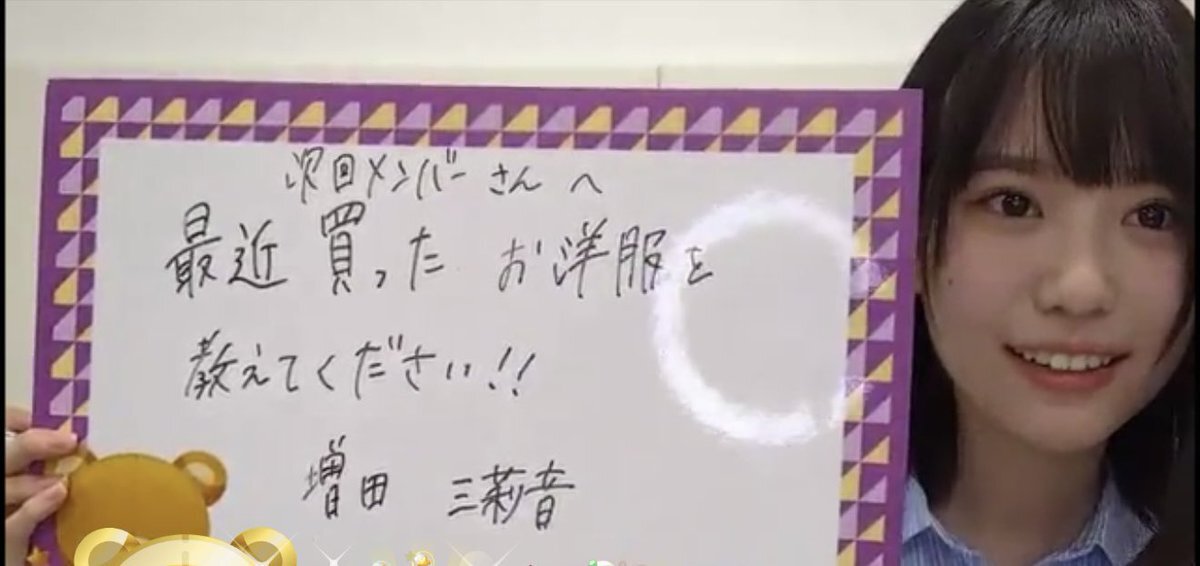 次回メンバーさんへ
最近買ったお洋服を
教えてください!!
増田 三莉音